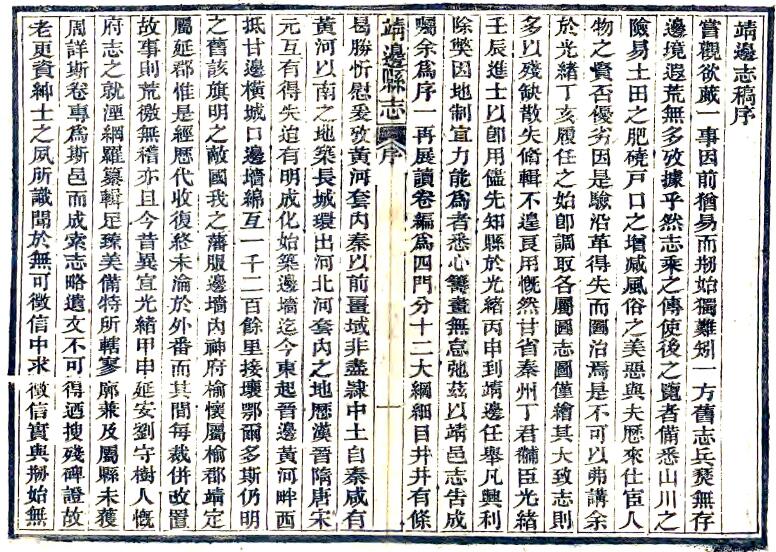 靖邊志稿序
嘗觀欲蕆一事因前猶易而刱始獨難矧一方舊志兵燹無存
邊境遐荒無多攷據乎然志乘之傳使後之覽者備悉山川之
險易土田之肥磽戶口之增减風俗之美惡與夫歷來仕宦人
物之賢否優劣因是驗沿革得失而圖治焉是不可以弗講余
於光緒丁亥履任之始卽調取各屬圖志圖僅繪其大致志則
多以殘缺散失脩輯不遑良用慨然甘省秦州丁君錫臣光緒
壬辰進士以卽用儘先知縣於光緒丙申到靖邊任舉凡興利
除獘因地制宜力能爲者悉心籌畫無怠弛茲以靖邑志告成
囑余爲序一再展讀卷編爲四門分十二大綱細目井井有條
靖邊縣志 序 一
曷勝忻慰爰攷黃河套內秦以前畺域非盡隸中土自秦咸有
黃河以南之地築長城環出河北河套內之地歷漢晉隋唐宋
元互有得失迨有明成化始築邊墻迄今東起晉邊黃河畔西
抵甘邊橫城口邊墻綿互一千二百餘里接壤鄂爾多斯仍明
之舊該旗明之敵國我之藩服邊墻內神府榆懷屬榆郡靖定
屬延郡惟是經歷代收復終未淪於外番而其間每裁併改置
故事則荒徼無稽亦且今昔異宜光緒甲申延安劉守樹人慨
府志之就湮網羅纂輯足臻美備特所轄寥廓兼及屬縣未獲
周詳斯卷專爲斯邑而成索志略遺文不可得迺搜殘碑證故
老更資紳士之夙所識聞於無可徵信中求徵信實與刱始無